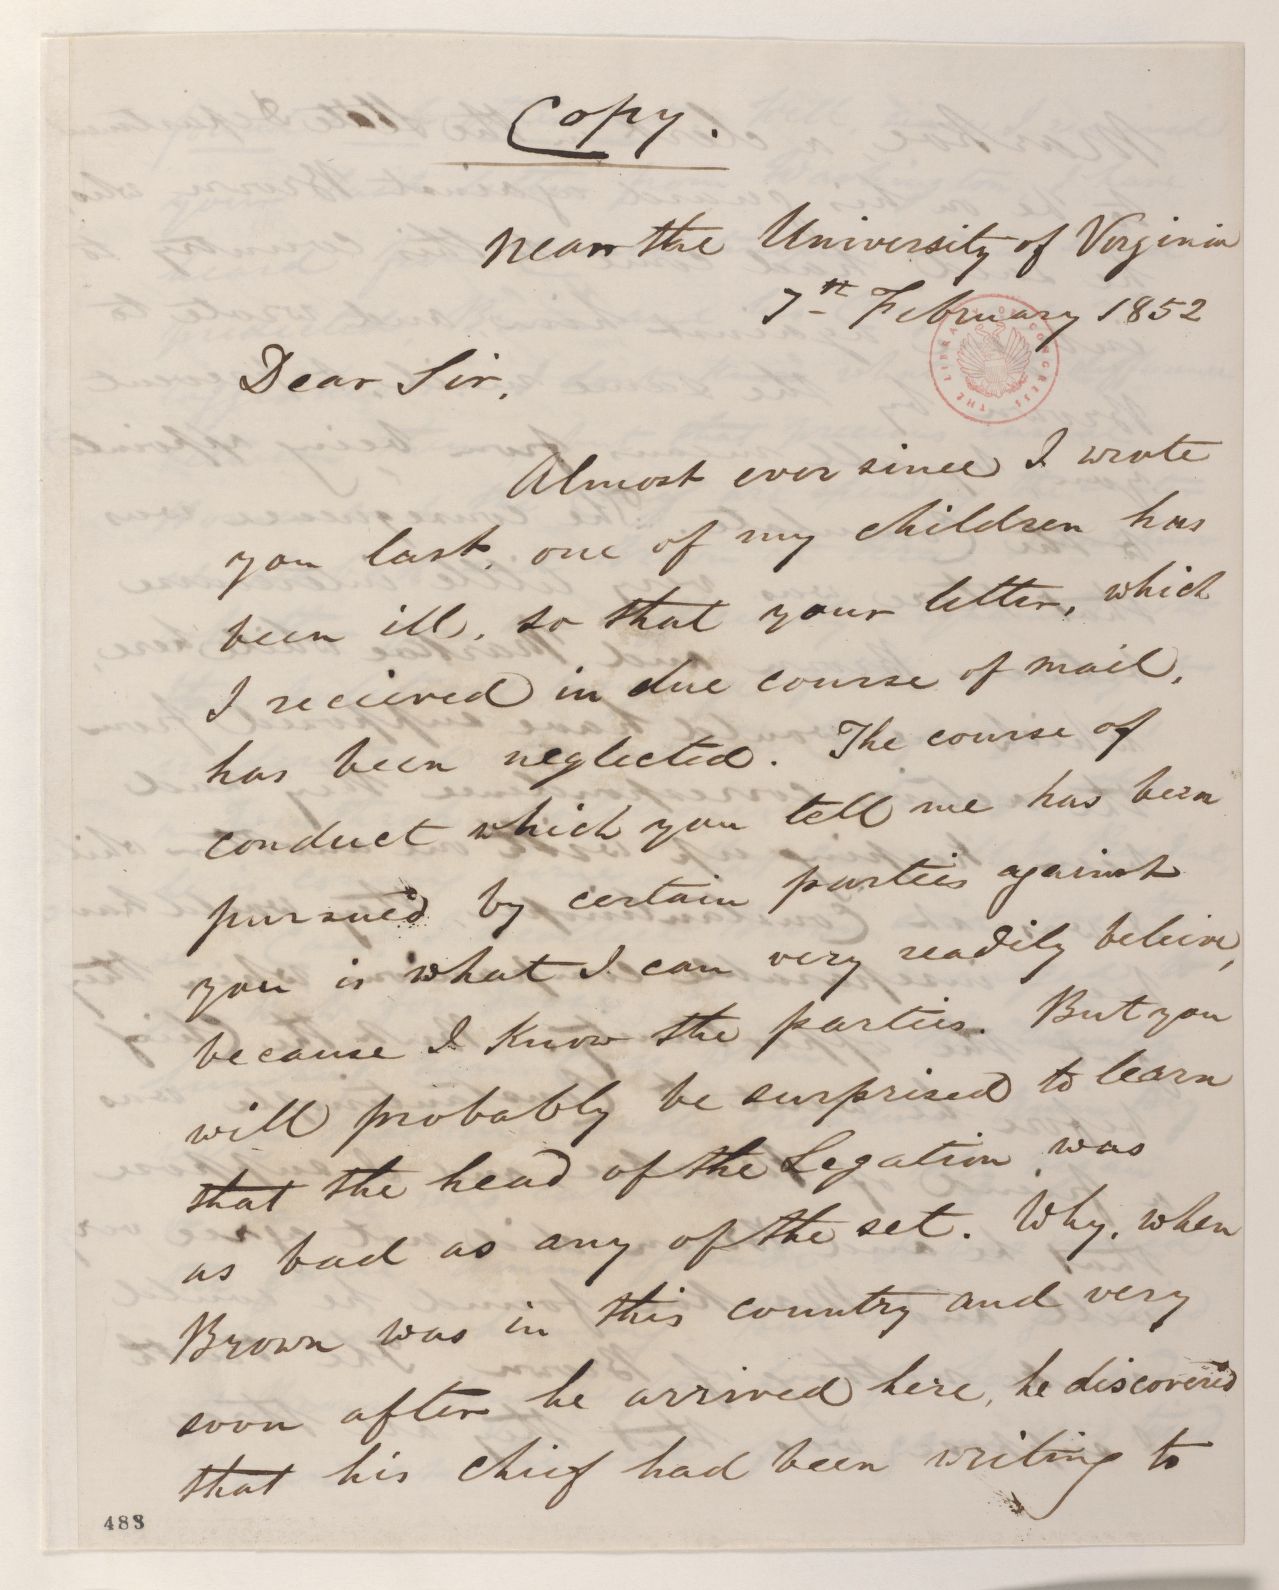 Copy.
Near the University of Virginia
7th February 1852
Dear Sir,
Almost ever since I wrote
you last, one of my children has
been ill, so that your letter, which
I recieved in due course of mail,
has been neglected. The course of
conduct which you tell me has been
pursued by certain parties against
you is what I can very readily beleive,
because I know the parties. But you
will probably be surprised to learn
that the head of the Legation was
as bad as any of the set. Why, when
Brown was in this country and very
soon after he arrived here, he discovered
that his chief had been writing to
THE LIBRARY OF CONGRESS
483